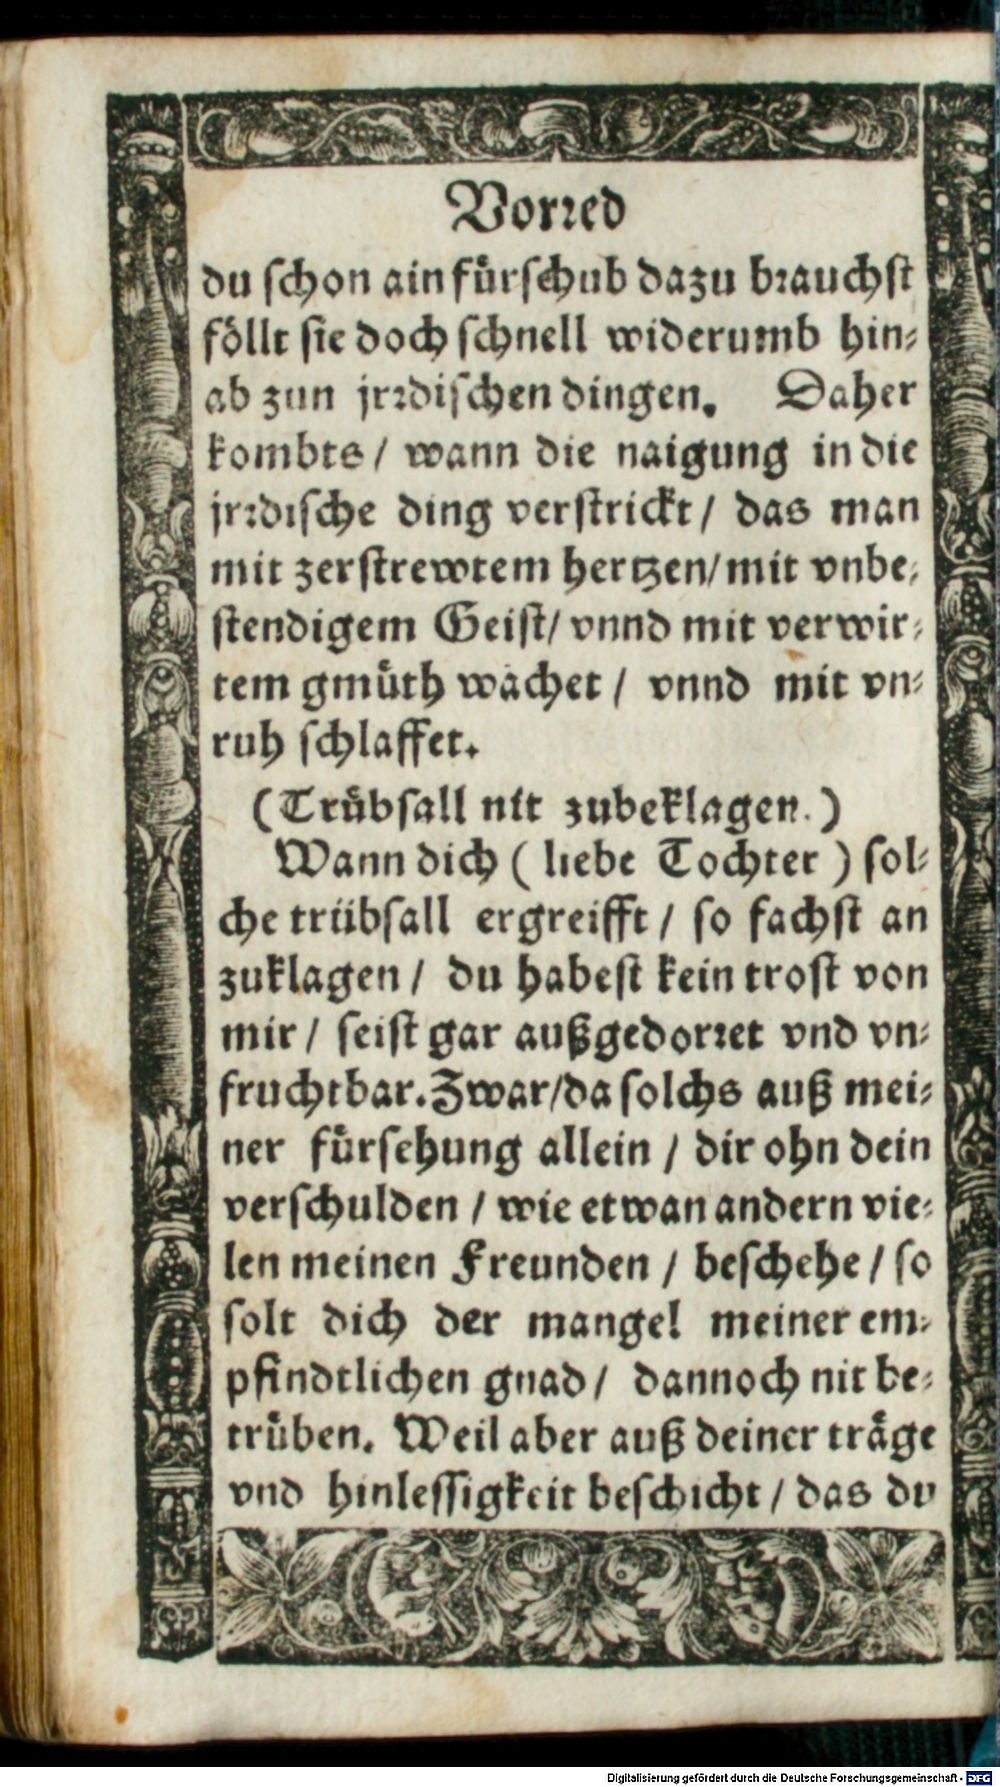 Vorꝛed
du schon ain fürschub dazu bꝛauchst
föllt sie doch schnell widerumb hin⸗
ab zun jrꝛdischen dingen. Daher
kombts / wann die naigung in die
jrꝛdische ding verstrickt / das man
mit zerstrewtem hertzen / mit vnbe⸗
stendigem Geist / vnnd mit verwir⸗
tem gmüth wachet / vnnd mit vn⸗
ruh schlaffet.
(Trübsall nit zubeklagen.)
Wann dich ( liebe Tochter ) sol⸗
che trübsall ergreifft / so fachst an
zuklagen / du habest kein trost von
mir / seist gar außgedorꝛet vnd vn⸗
fruchtbar. Zwar / da solchs auß mei⸗
ner fürsehung allein / dir ohn dein
verschulden / wie etwan andern vie⸗
len meinen Freunden / beschehe / so
solt dich der mangel meiner em⸗
pfindtlichen gnad / dannoch nit be⸗
trüben. Weil aber auß deiner träge
vnd hinlessigkeit beschicht / das du
Digitalisierung gefördert durch die Deutsche Forschungsgemeinschaft - DFG